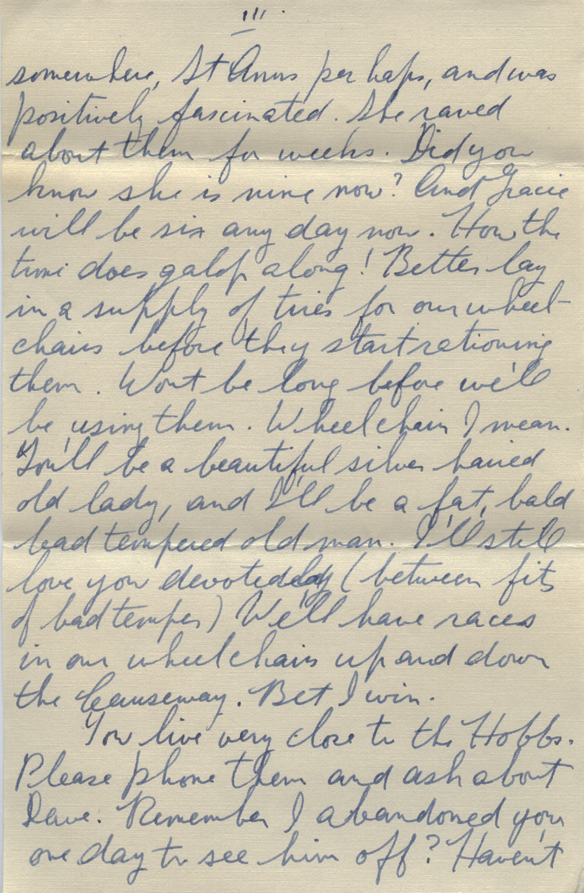 III
somewhere, St Anns perhaps, and was
positively fascinated. She raved
about them for weeks. Did you
know she is nine now? And Gracie
will be six any day now. How the
time does galop along! Better lay
in a supply of tires for our wheel-
chairs before they start rationing
them. Wont be long before we'll
be using them. Wheelchairs I mean.
You'll be a beautiful silver haired
old lady, and I'll be a fat, bald
bad tempered old man. I'll still
love you devotedly (between fits
of bad temper) We'll have races
in our wheelchairs up and down
the Causeway. Bet I win.
You live very close to the Hobbs.
Please phone them and ask about
Dave. Remember I abandoned you
one day to see him off? Haven't